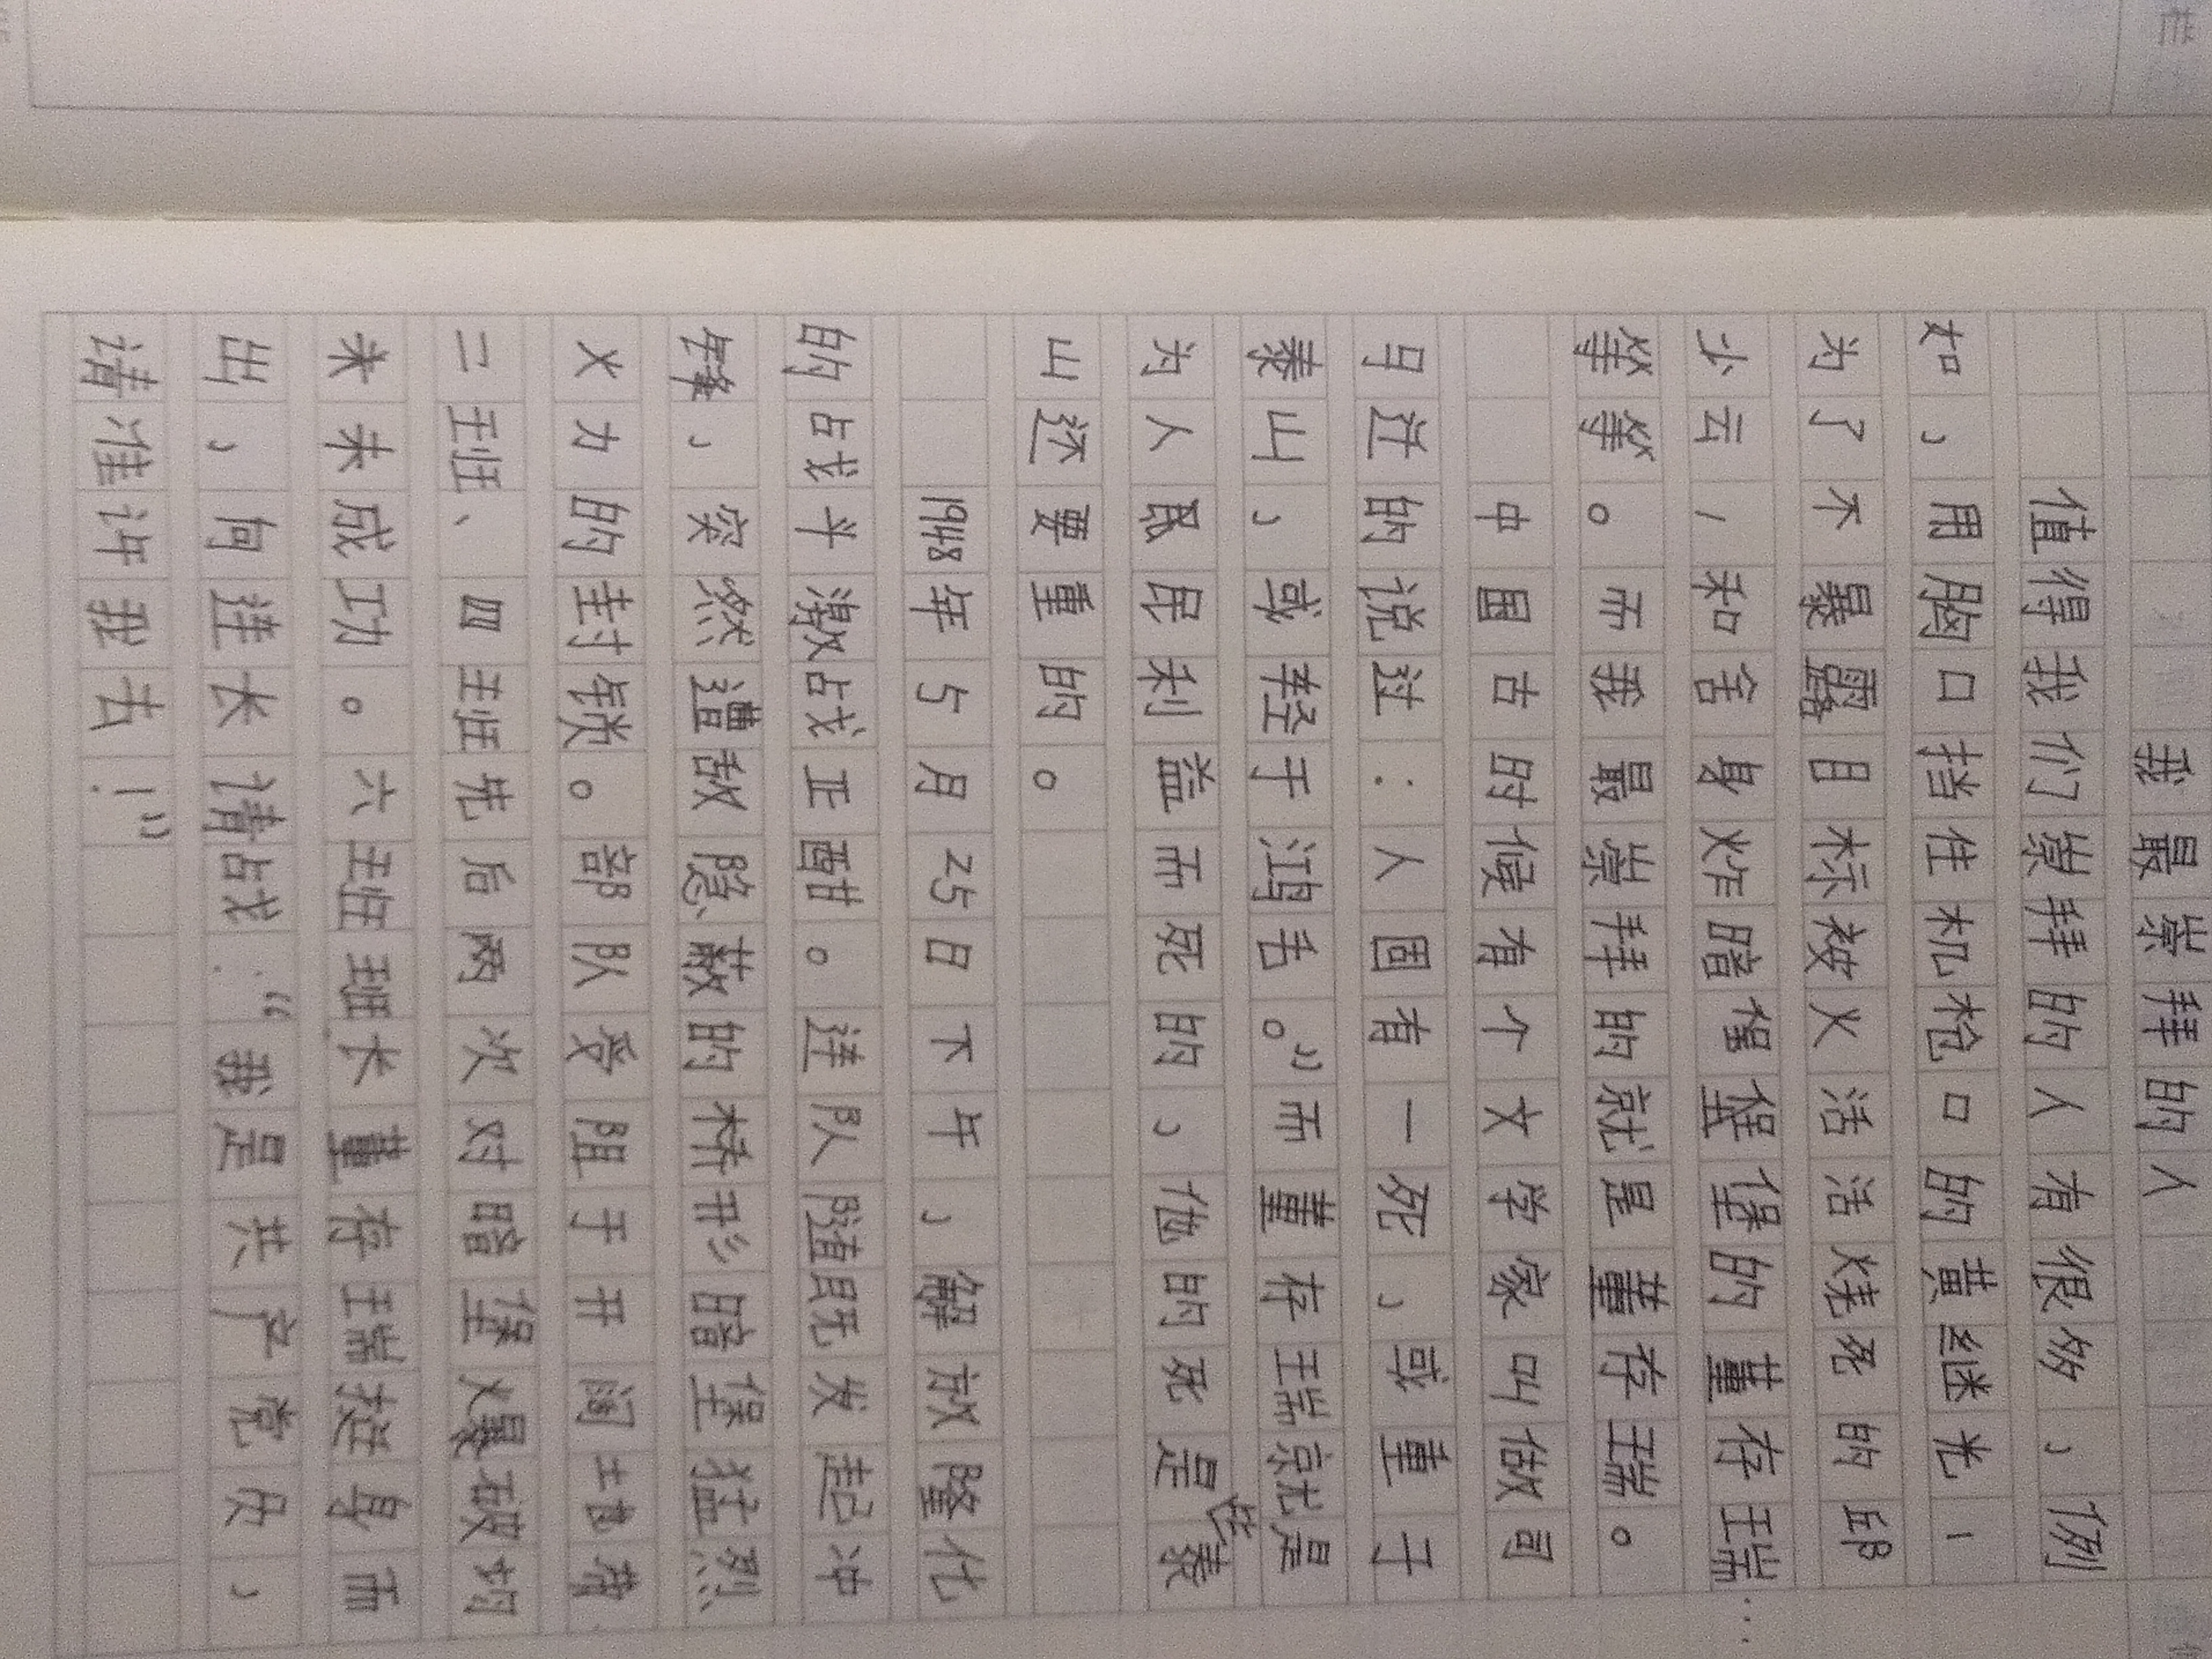 我最崇拜的人
值得我们崇拜的人有很多，例
如，用胸口挡住机枪口的黄继光、
为了不暴露目标被火活活烧死的邱
少云、和舍身炸暗堡堡的董存瑞…
等等。而我最崇拜的就是董存瑞。
中国古时候有个文学家叫做司
马迁的说过：人固有一死，或重于
泰山，或轻于鸿毛。”而董存瑞就是
为人民民利益而死的，他的死是比泰
山还要重的。
1948年5月25日下午，解放隆化
的战斗激战正酣。连队随既发起冲
锋，突然遭敌隐蔽的桥形暗堡猛烈
火力的封锁。部队受阻于开阔地带，
二班、四班先后两次对暗堡爆破均
未未成功。六班班长董存瑞挺身而
出，向连长请战：“我是共产党员，
请准许我去！”